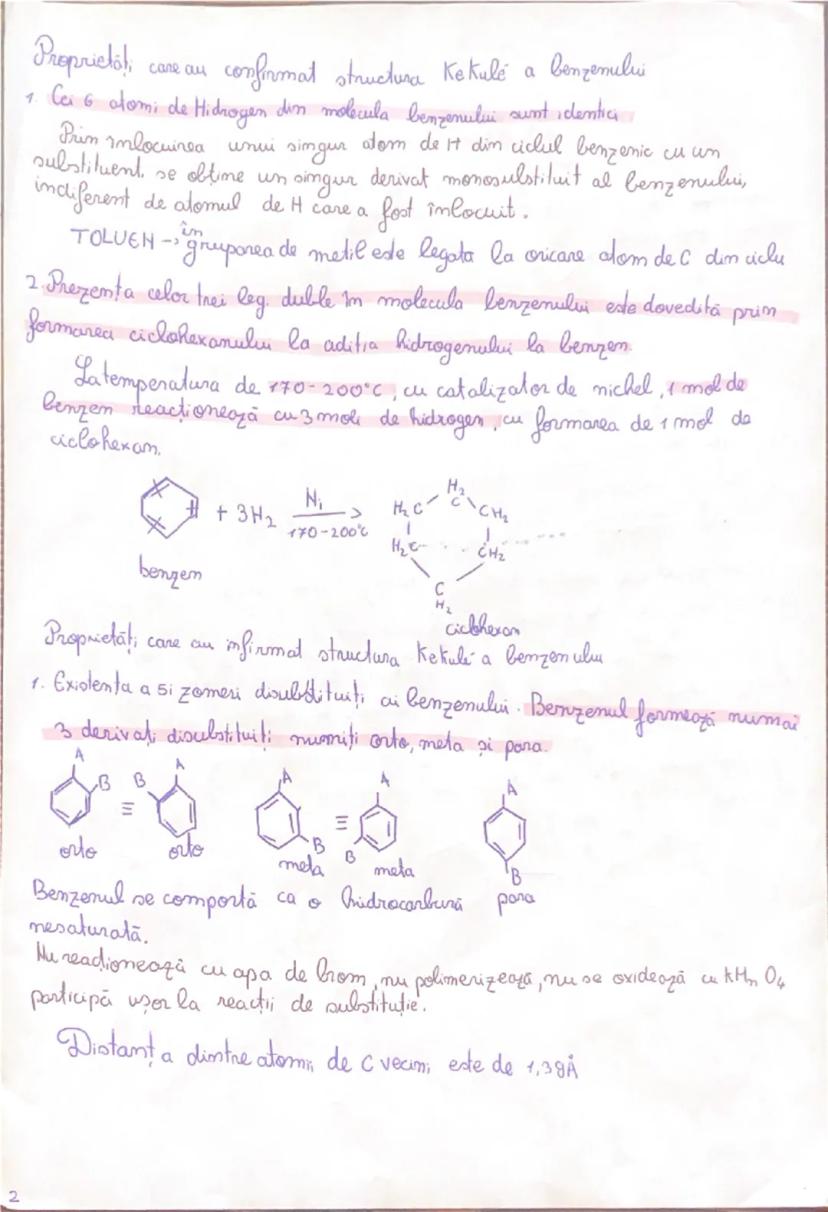 Proprietăți care au confirmat structura Kekulé a benzenului
1. Cei 6 atomi de Hidrogen din molecula benzenului sunt identici
Prin înlocuirea unui singur atom de H din ciclul benzenic cu un
substituent, se obține un singur derivat monosubstituit al benzenului,
indiferent de atomul de H care a fost înlocuit.
TOLUEN → în gruparea de metil este legata la oricare atom de C din ciclu
2. Prezența celor trei leg. duble în molecula benzenului este dovedită prin
formarea ciclohexanului la aditia hidrogenului la benzen.
La temperatura de 170-200°C, cu catalizator de nichel, 1 mol de
benzen reacționează cu 3 moli de hidrogen, cu formarea de 1 mol de
ciclohexan.
+ 3H2 Ni 170-200°C →
H2C H2C CH2
H2C CH2
C H2
benzen
ciclohexan
Proprietăți care au infirmat structura Kekulé a benzenului
1. Existența a 5 izomeri disubstituiți ai benzenului. Benzenul formează numai
3 derivați disubstituiți numiți orto, meta și para.
A B ≡ B A A B ≡ A B A B
orto orto meta meta para
Benzenul se comportă ca o hidrocarbură
nesaturată.
Nu reacționează cu apa de brom, nu polimerizează, nu se oxidează cu KMnO4
participă ușor la reacții de substituție.
Distanța dintre atomii de C vecini este de 1,39Å
2